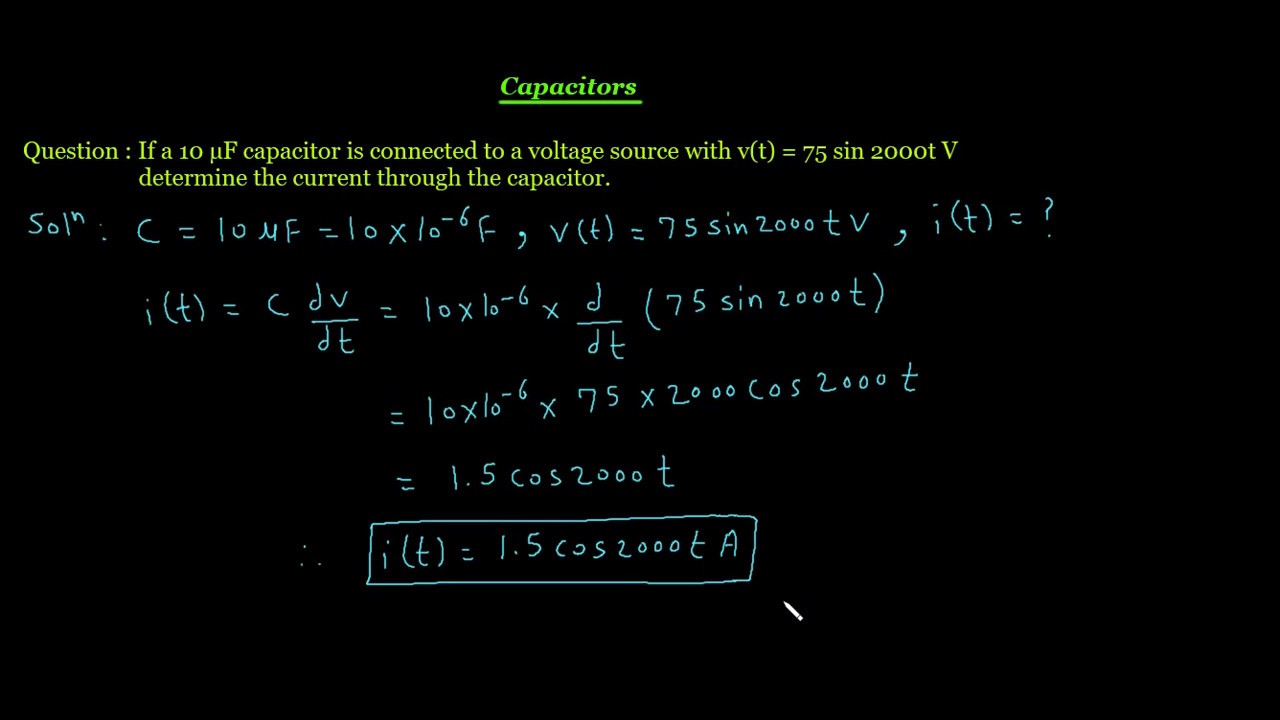 Capacitors
Question : If a 10 µF capacitor is connected to a voltage source with v(t) = 75 sin 2000t V
determine the current through the capacitor.
Solⁿ : C = 10 µF = 10 × 10⁻⁶ F , v(t) = 75 sin 2000 t V , i(t) = ?
i(t) = C dv/dt = 10 × 10⁻⁶ × d/dt (75 sin 2000 t)
= 10 × 10⁻⁶ × 75 × 2000 cos 2000 t
= 1.5 cos 2000 t
∴ i(t) = 1.5 cos 2000 t A